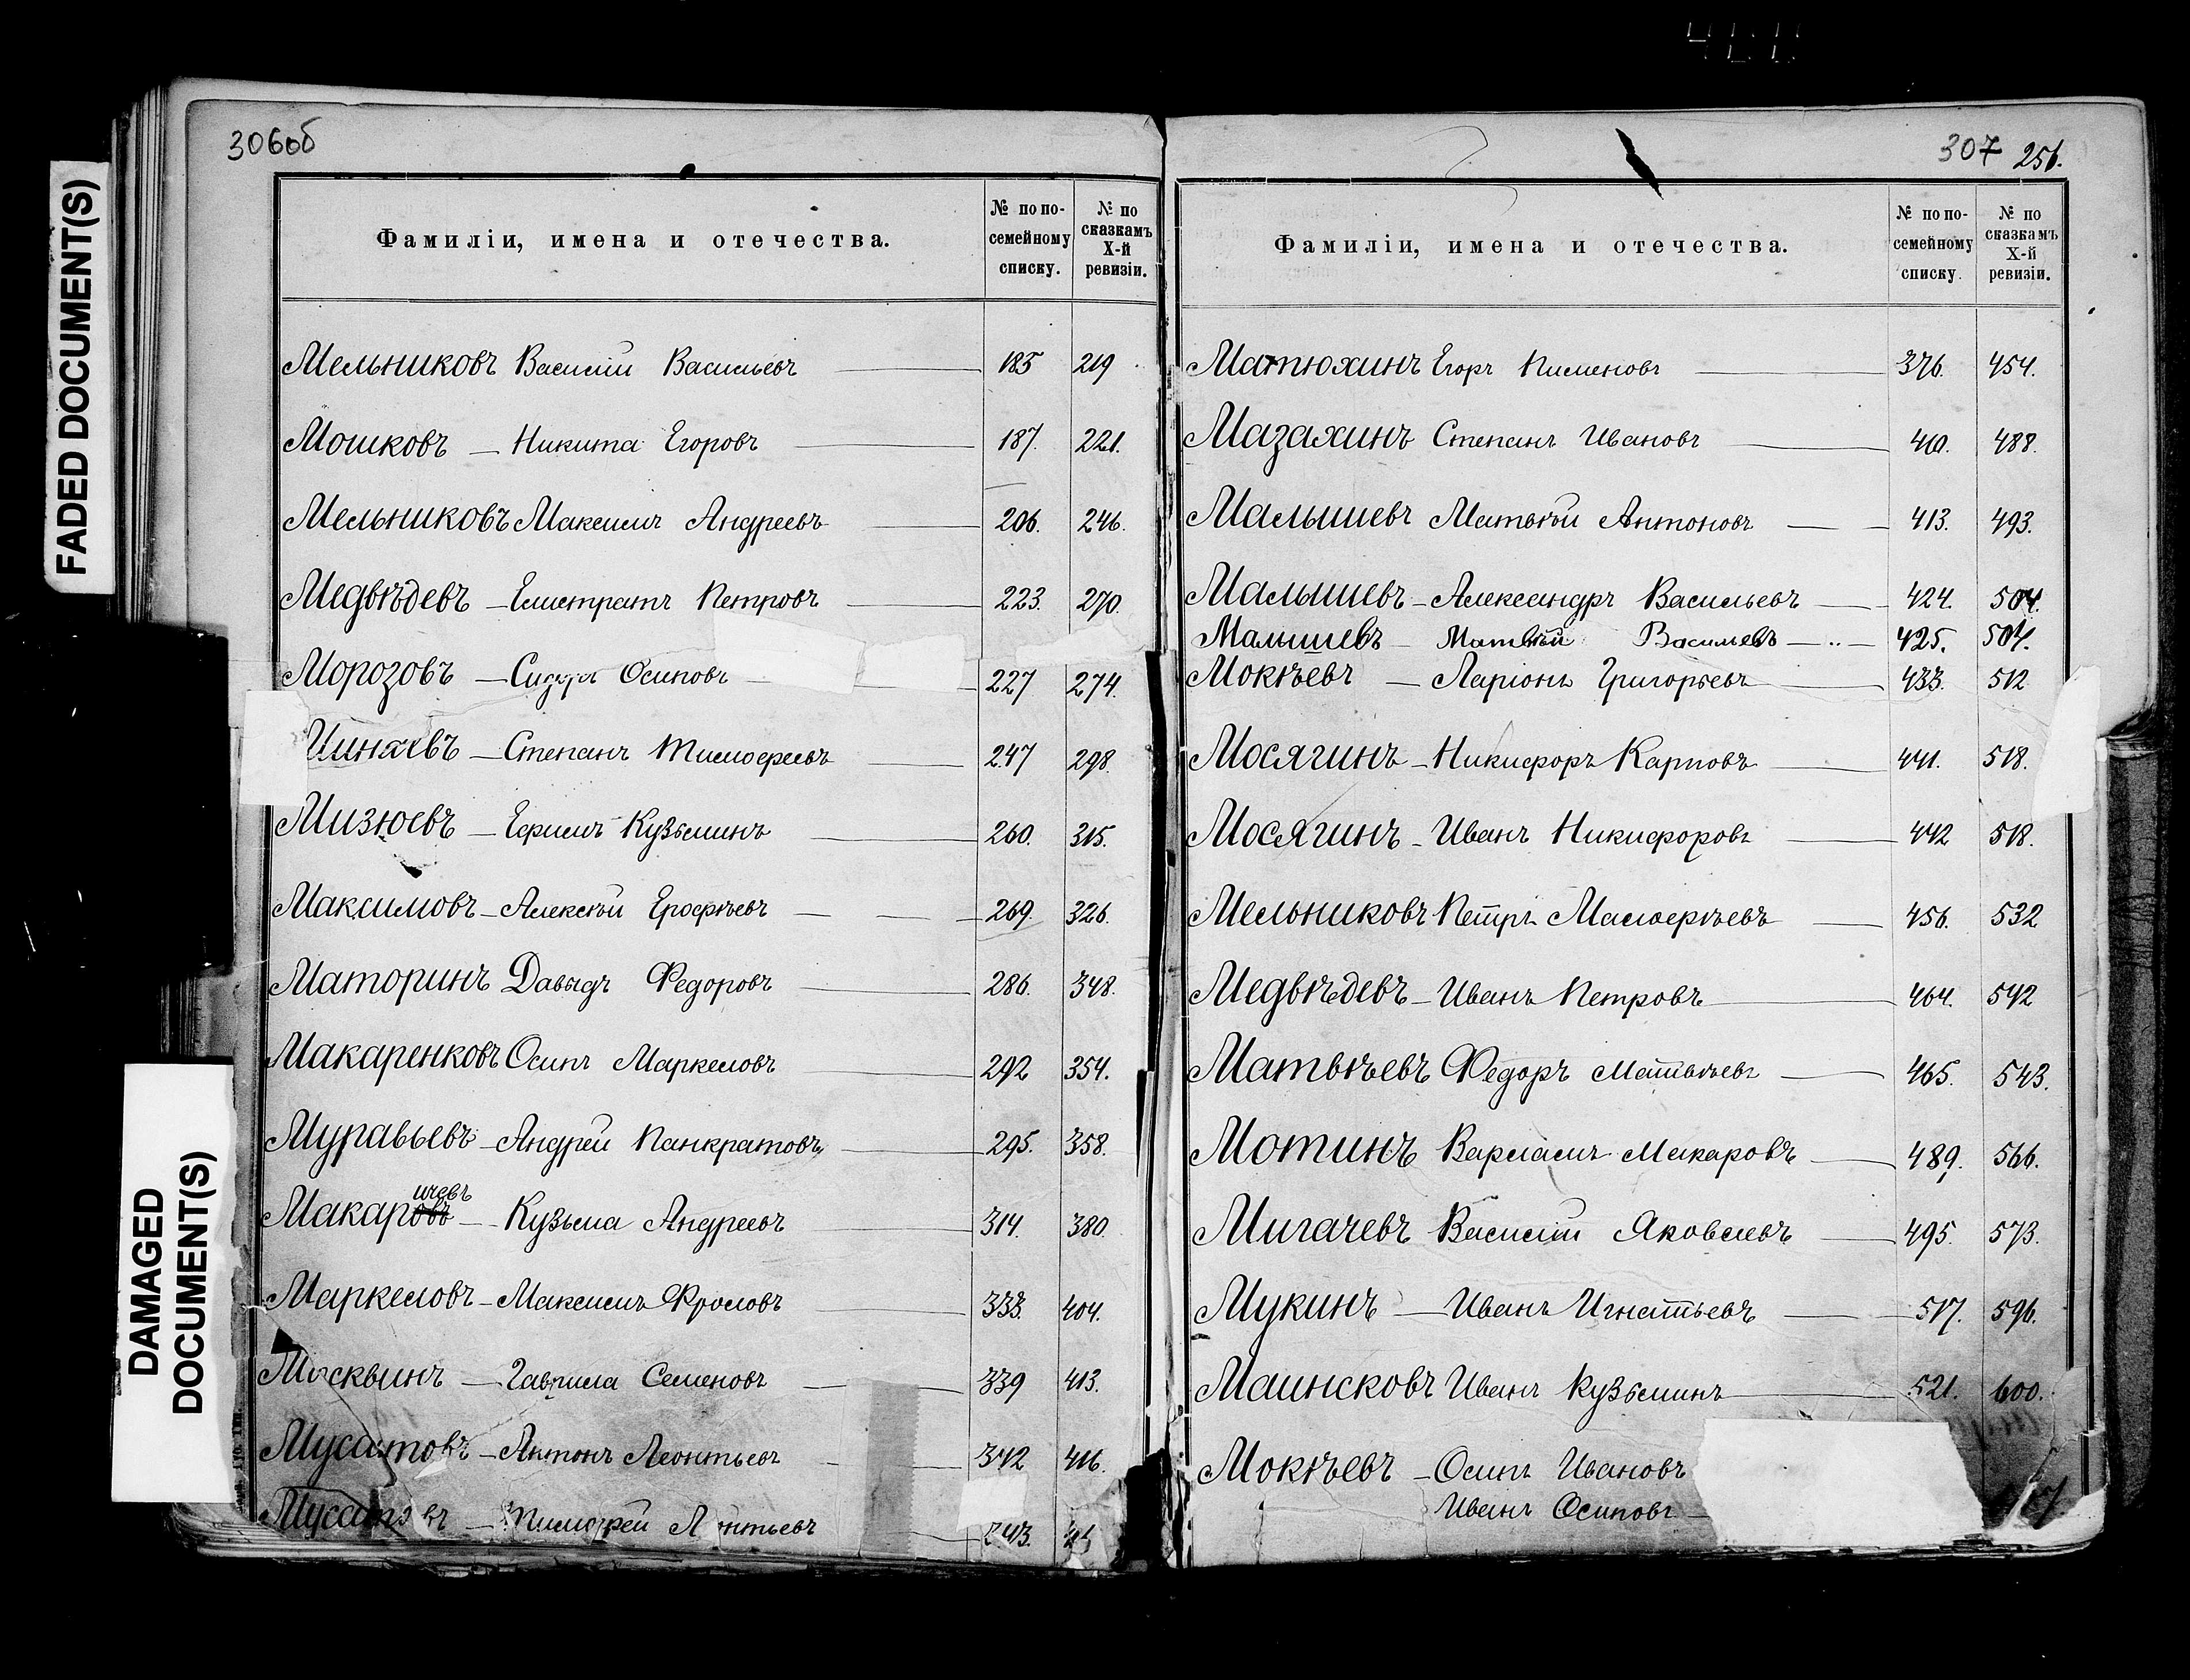 FADED DOCUMENT(S)
DAMAGED
DOCUMENT(S)
306об
Фамиліи, имена и отечества.
№ по по-
семейному
списку.
№ по
сказкамъ
X-й
ревизіи.
Мельниковъ Василій Васильевъ 185 219
Мошковъ — Никита Егоровъ 187. 221.
Мельниковъ Максимъ Андреевъ 206. 246.
Медвѣдевъ — Елистратъ Петровъ 223. 270.
Морозовъ — Осиповъ 227 274.
— Степанъ Тимофеевъ 247 298.
Мизюевъ — Ефимъ Кузьминъ 260. 315.
Максимовъ — Алексѣй Ерофѣевъ 269. 326.
Маторинъ Давыдъ Федоровъ 286. 348.
Макаренковъ Осипъ Маркеловъ 292 354.
Муравьевъ — Андрей Панкратовъ 295. 358.
ичевъ
Макаровъ — Кузьма Андреевъ 314. 380.
Маркеловъ — Максимъ Фроловъ 333. 404.
Москвинъ — Гаврила Семеновъ 339 413.
Мусатовъ — Антонъ Леонтьевъ 342 416.
Мусатовъ — Тимофей Леонтьевъ 343.
307 256.
Фамиліи, имена и отечества.
№ по по-
семейному
списку.
№ по
сказкамъ
X-й
ревизіи.
Матюхинъ Егоръ Пименовъ 376. 454.
Мазахинъ Степанъ Ивановъ 410. 488.
Малышевъ Матвѣй Антоновъ 413. 493.
Малышевъ — Александръ Васильевъ 424. 504.
Малышевъ — Матвѣй Васильевъ 425. 504.
Мокѣевъ — Ларіонъ Григорьевъ 433. 512
Мосягинъ — Никифоръ Карповъ 441. 518.
Мосягинъ — Иванъ Никифоровъ 442 518.
Мельниковъ Петръ Малоерѣевъ 456. 532
Медвѣдевъ — Иванъ Петровъ 464. 542
Матвѣевъ Федоръ Матвѣевъ 465. 543.
Мотинъ Варламъ Макаровъ 489. 566.
Мигачевъ Василій Яковлевъ 495. 573.
Мукинъ — Иванъ Игнатьевъ 517. 596.
Маинсковъ Иванъ Кузьминъ 521. 600.
Мокѣевъ — Осипъ Ивановъ
Иванъ Осиповъ